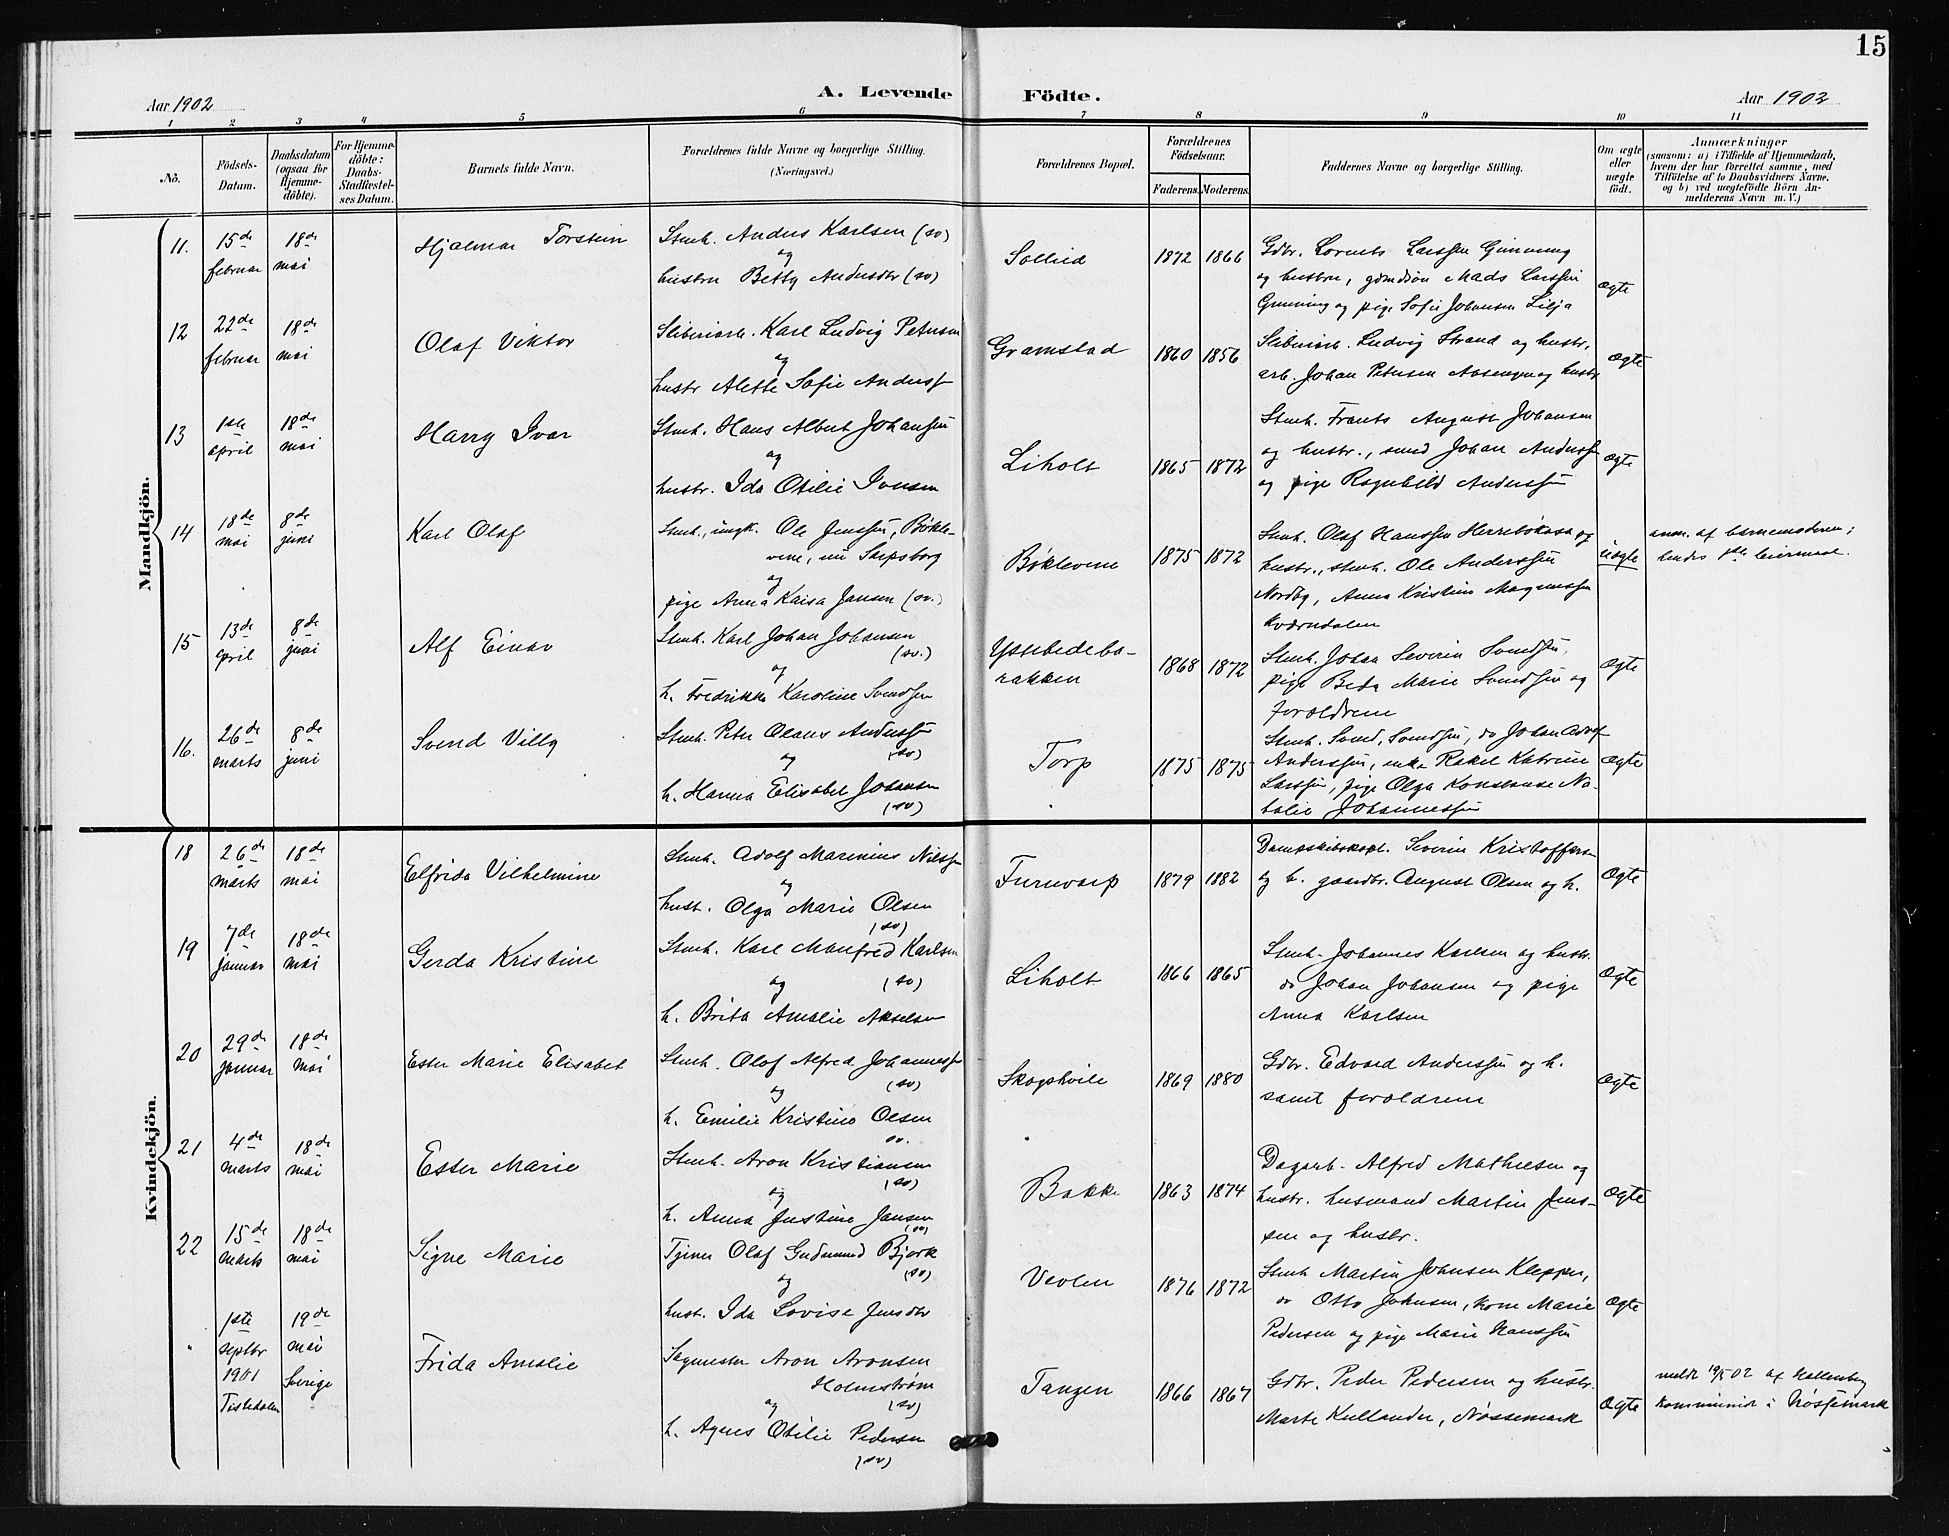 15
Aar 1902
A. Levende
Födte.
Aar 1902
1 2 3 4 5 6 7 8 9 10 11
No.
Födsels-
Datum.
Daabsdatum
(ogsaa for
Hjemme-
döbte).
For Hjemme-
döbte:
Daabs-
Stadfæstel-
ses Datum.
Barnets fulde Navn.
Forældrenes fulde Navne og borgerlige Stilling.
(Næringsvei.)
Forældrenes Bopæl.
Forældrenes
Födselsaar.
Faderens.
Moderens.
Faddernes Navne og borgerlige Stilling.
Om ægte
eller
uægte
födt.
Anmærkninger
(saasom: a) i Tilfælde af Hjemmedaab,
hvem der har forrettet samme, med
Tilföielse af to Daabsvidners Navne,
og b) ved uægtefödte Börn An-
melderens Navn m. V.)
Mandkjön.
11.
15de
februar
18de
mai
Hjalmar Torstein
Stenh. Anders Karlsen (sv)
og
hustru Betty Andersdtr (sv)
Sollied
1872
1866
Gdbr. Lorents Larssen Gunneng
og hustru, gdmdsøn Mads Larssen
og pige Sofie Johansen Lilja
ægte
12
22de
februar
18de
mai
Olaf Viktor
Sliberiarb. Karl Ludvig Petersen
og
hustr Alette Sofie Anderss
Gramstad
1860
1856
Sliberiarb. Ludvig Strand og hustr,
arb. Johan Petersen og hustr
ægte
13
1ste
april
18de
mai
Harry Ivar
Stenh. Hans Albert Johanssen
og
hustr. Ida Otilie Iversen
Liholt
1865
1872
Stenh. Frants August Johansen
og hustr., smed Johan Anderss
og pige Ragnhild Anderssen
ægte
14
18de
mai
8de
juni
Karl Olaf
Stenh., ungk. Ole Jenssen, Bøkle-
vene, nu Sarpsborg
og
pige Anna Kaisa Jansen (sv.)
Bøklevene
1875
1872
Stenh. Olaf Hanssen Herrebøkasa og
hustr., stenh. Ole Anderssen
Nordby, Anna Kristine Magnussen
Kværndalen
uægte
anm. af barnemoderen;
hendes 1ste leiermaal.
15
13de
april
8de
juni
Alf Einar
Stenh. Karl Johan Johansen
(sv.)
og
h. Fredrikke Karoline Svendsen
Yssebedeba-
rakken
1868
1872
Stenh. Johan Severin Svendsen,
pige Beda Marie Svendsen og
forældrene
ægte
16.
26de
marts
8de
juni
Svend Villy
Stenh. Peter Olaus Anderss
(sv)
og
h. Hanna Elisabet Johansen
(sv)
Torp
1875
1875
Stenh. Svend Svendsen, do Johan Adolf
Anderssen, enke Rakel Katrine
Larssen, pige Olga Konstanse Na-
talie Johannessen
ægte
Kvindekjön.
18
26de
marts
18de
mai
Elfrida Vilhelmine
Stenh. Adolf Marinius Nilss
og
hust. Olga Marie Olsen
(sv)
Furuvarp
1879
1882
Dampskibskapt. Severin Kristoffersen
og h. gaardbr. August Olsen og h.
ægte
19
7de
januar
18de
mai
Gerda Kristine
Stenh. Karl Manfred Karlsen
og (sv)
h. Brita Amalie Akselsen
Liholt
1866
1865
Stenh. Johannes Karlsen og hustr.
do Johan Johansen og pige
Anna Karlsen
ægte
20
29de
januar
18de
mai
Ester Marie Elisabet
Stenh. Olaf Alfred Johanness
(sv)
og
h. Emilie Kristine Olsen
sv.
Skogshvile
1869
1880
Gdbr. Edvard Anderssen og h.
samt forældrene
ægte
21
4de
marts
18de
mai
Ester Marie
Stenh. Aron Kristiansen
(sv)
og
h. Anna Justine Jansen
(sv)
Bakke
1863
1874
Dagarb. Alfred Mathiesen og
hustr. husmand Martin Jens-
sen og hustr.
ægte
22
15de
marts
18de
mai
Signe Marie
Tjener Olaf Gudmund Bjørk
(sv)
og
hust. Ida Lovise Jensdtr
Veolen
1876
1872
Stenh Martin Johnsen Kleppen,
do Otto Johnsen, kone Marie
Pedersen og pige Marie Hanssen
ægte
"
1ste
septbr
1901
Tistedalen
19de
mai
Sverige
Frida Amalie
Sagmester Aron Aronsen
Holmstrøm
(sv)
og
h. Agnes Otilie Pedersen
(sv)
Tangen
1866
1867
Gdbr. Peder Pedersen og hustr.
Marte Kullander, Nøssemark
ægte
meldt 19/5 02 af
i Nøssemark